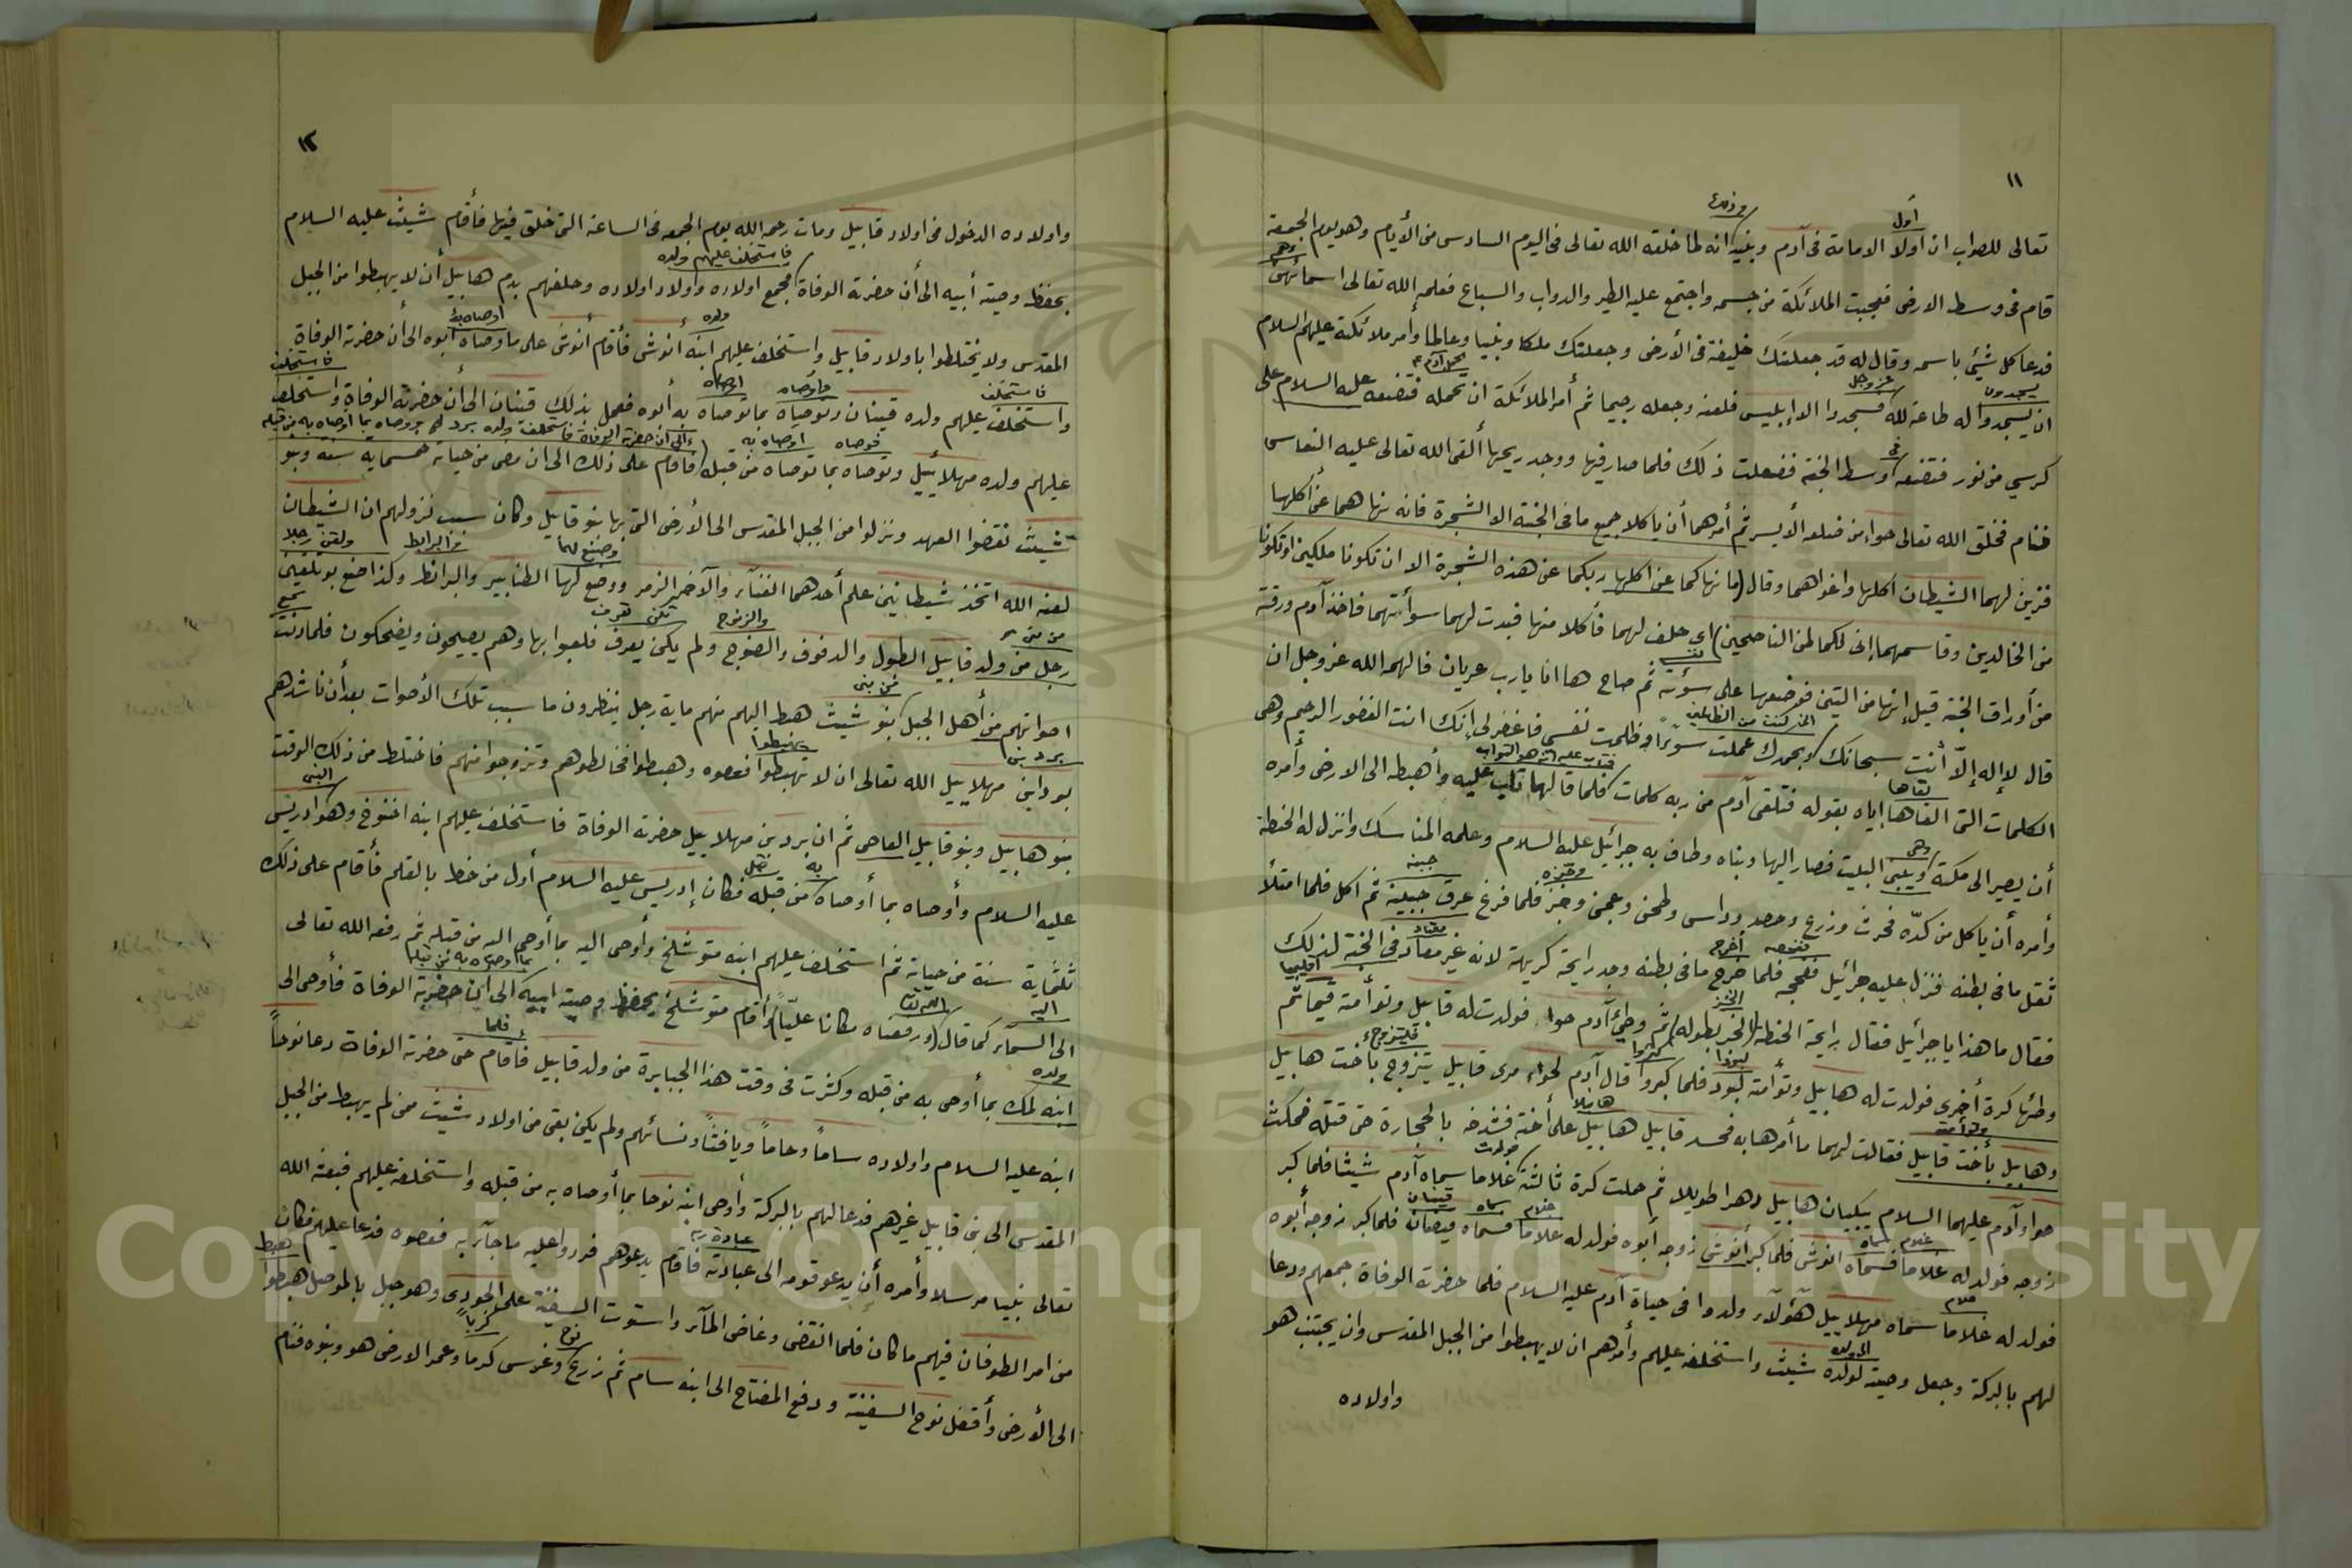 ١١
أول
وذلك
تعالى للصواب ان اولا الامامة فى آدم وبنيه انه لما خلقه الله تعالى فى اليوم السادس من الأيام وهو يوم الجمعة
قام فى وسط الارض فعجبت الملائكة من جسمه واجتمع عليه الطير والدواب والسباع فعلمه الله تعالى اسمائهن
فدعا كل شيئ باسمه وقال له قد جعلتك خليفة فى الأرض وجعلتك ملكا ونبيا وعالما وأمر ملائكته عليهم السلام
يسجدون
عز وجل
ان يسجدوا له طاعة لله فسجدوا الا إبليس فلعنه وجعله رجيما ثم أمر الملائكة ان تحمله فتضعه عليه السلام على
فى
كرسي من نور فتضعه وسط الجنة ففعلت ذلك فلما صار فيها ووجد ريحها ألقى الله تعالى عليه النعاس
فنام فخلق الله تعالى حواء من ضلعه الأيسر ثم أمرهما أن ياكلا جميع ما فى الجنة الا الشجرة فانه نهاهما عن أكلها
فزين لهما الشيطان اكلها واغراهما وقال (ما نهاكما عن اكلها ربكما عن هذه الشجرة الا ان تكونا ملكين او تكونا
من الخالدين وقاسمهما إنى لكما لمن الناصحين) اي حلف لهما فأكلا منها فبدت لهما سوأتهما فاخذ آدم ورقة
من أوراق الجنة قيل إنها من التين فوضعها على سوأته ثم صاح ها انا يارب عريان فالهمه الله عز وجل ان
إنى كنت من الظالمين
قال لا إله إلّا أنت سبحانك وبحمدك عملت سوءًا وظلمت نفسى فاغفر لى إنك انت الغفور الرحيم وهى
لقاها
فتاب عليه انه هو التواب
الكلمات التى القاها إياه بقوله فتلقى آدم من ربه كلمات فلما قالها تاب عليه وأهبطه الى الارض وأمره
وهى
أن يصير الى مكة ويبنى البيت فصار اليها وبناه وطاف به جبرائيل عليه السلام وعلمه المناسك وانزل له الحنطة
وخبزه
جبينه
وأمره أن ياكل من كدّه فحرث وزرع وحصد وداس وطحن وعجن وخبز فلما فرغ عرق جبينه ثم اكل فلما امتلأ
أخرج
معتاد
ثقل ما فى بطنه فنزل عليه جبرائيل ففجه فلما خرج ما فى بطنه وجد رايحة كريهة لانه غير معتاد فى الجنة لذلك
اقليميا
فقال ما هذا يا جبرائيل فقال رايحة الحنطة ثم وطئ آدم حواء فولدت له قابيل وتوأمته قيما ثم
كبروا
فليتزوج
وطئها كرة أخرى فولدت له هابيل وتوأمته لبود فلما كبروا قال آدم لحواء مرى قابيل يتزوج بأخت هابيل
هابيلا
وهابيل بأخت قابيل فقالت لهما ما أمرها به فحسد قابيل هابيل على أخته فشدخه بالحجارة حتى قتله فمكث
فولدت
حوا وآدم عليهما السلام يبكيان هابيل دهرا طويلا ثم حملت كرة ثالثة غلاما سماه آدم شيثا فلما كبر
غلام سماه
غلام سماه قينان
زوجه فولد له غلاما فسماه انوش فلما كبر أنوش زوجه أبوه فولد له غلاما فسماه قينان فلما كبر زوجه أبوه
غلام
فولد له غلاما سماه مهلاييل هؤلاء ولدوا فى حياة آدم عليه السلام فلما حضرته الوفاة جمعهم ودعا
الى ولده
لهم بالبركة وجعل وصيته لولده شيث واستخلفه عليهم وأمرهم ان لا يهبطوا من الجبل المقدس وان يجتنب هو
واولاده
١٢
واولاده الدخول فى اولاد قابيل ومات رحمه الله يوم الجمعه فى الساعة التى خلق فيها فأقام شيث عليه السلام
فاستخلف عليهم ولده
بحفظ وصية أبيه الى أن حضرته الوفاة فجمع اولاده واولاد اولاده وحلفهم بدم هابيل أن لا يهبطوا من الجبل
ولده
أوصاه به
المقدس ولا يختلطوا باولاد قابيل واستخلف عليهم ابنه أنوش فأقام أنوش على ما وصاه أبوه الى أن حضرته الوفاة
فاستخلف
فأوصاه
اوصاه
فاستخلف
واستخلف عليهم ولده قينان وتوصاه بما توصاه به أبوه فعمل بذلك قينان الى أن حضرته الوفاة واستخلف
فوصاه
اوصاه به
الى ان حضرته الوفاة فاستخلف ولده يرد ووصاه بما أوصاه به من قبله
عليهم ولده مهلائيل وتوصاه بما توصاه من قبله فاقام على ذلك الى ان مضى من حياته خمسماية سنة وبنو
شيث نقضوا العهد ونزلوا من الجبل المقدس الى الأرض التى بها بنو قابيل وكان سبب نزولهم ان الشيطان
وصنع لهما
والبرابط
ولقن رجلا
لعنه الله اتخذ شيطانين علم أحدهما الغناء والآخر الزمر ووضع لها الطنابير والبرانط وكذا صنع بو تلقين
من بنى
والزنوج
تكن تعرف
تسمع
رجل من ولد قابيل الطبول والدفوف والصنوج ولم يكن يعرف فلعبوا بها وهم يصيحون ويضحكون فلما دنت
من بنى
اصواتهم من أهل الجبل بنو شيث هبط اليهم منهم ماية رجل ينظرون ما سبب تلك الأصوات بعد أن ناشدهم
يرد بن
يهبطوا
بوداين مهلاييل الله تعالى ان لا تهبطوا فعصوه وهبطوا فخالطوهم وتزوجوا منهم فاختلط من ذلك الوقت
النبى
بنو هابيل وبنو قابيل العاصى ثم ان يرد بن مهلاييل حضرته الوفاة فاستخلف عليهم ابنه اخنوخ وهو ادريس
به
عليه السلام وأوصاه بما أوصاه من قبله فكان إدريس عليه السلام أول من خط بالقلم فأقام على ذلك
ثلثماية سنة من حياته ثم استخلف عليهم ابنه متوشلخ وأوصى اليه بما أوصى اليه من قبله ثم رفعه الله تعالى
اليه
الله تعالى
بما اوصاه به من قبله
الى السماء كما قال (ورفعناه مكانا عليّا) وأقام متوشلخ يحفظ وصية ابيه الى ان حضرته الوفاة فأوصى الى
ولده
فلما
ابنه لمك بما أوصى به من قبله وكثرت فى وقت هذا الجبابرة من ولد قابيل فاقام حتى حضرته الوفاة دعا نوحاً
ابنه عليه السلام واولاده ساماً وحاماً ويافثاً ونسائهم ولم يكن بقى من اولاد شيث ممن لم يهبط من الجبل
المقدس الى بنى قابيل غيرهم فدعا لهم بالبركة وأوصى ابنه نوحا بما أوصاه به من قبله واستخلفه عليهم فبعثه الله
عبادة ربه
تعالى نبيا مرسلا وأمره أن يدعو قومه الى عبادته فاقام يدعوهم فردوا عليه ما جآء به فعصوه فدعا عليهم فكان
هبط
من امر الطوفان فيهم ما كان فلما انقضى وغاض المآء واستوت السفينة على الجودى وهو جبل بالموصل هبطوا
نوح
كرماً
الى الأرض وأقفل نوح السفينة ودفع المفتاح الى ابنه سام ثم زرع وغرس كرما وعمر الارض هو وبنوه فنام
Copyright © King Saud University
1957